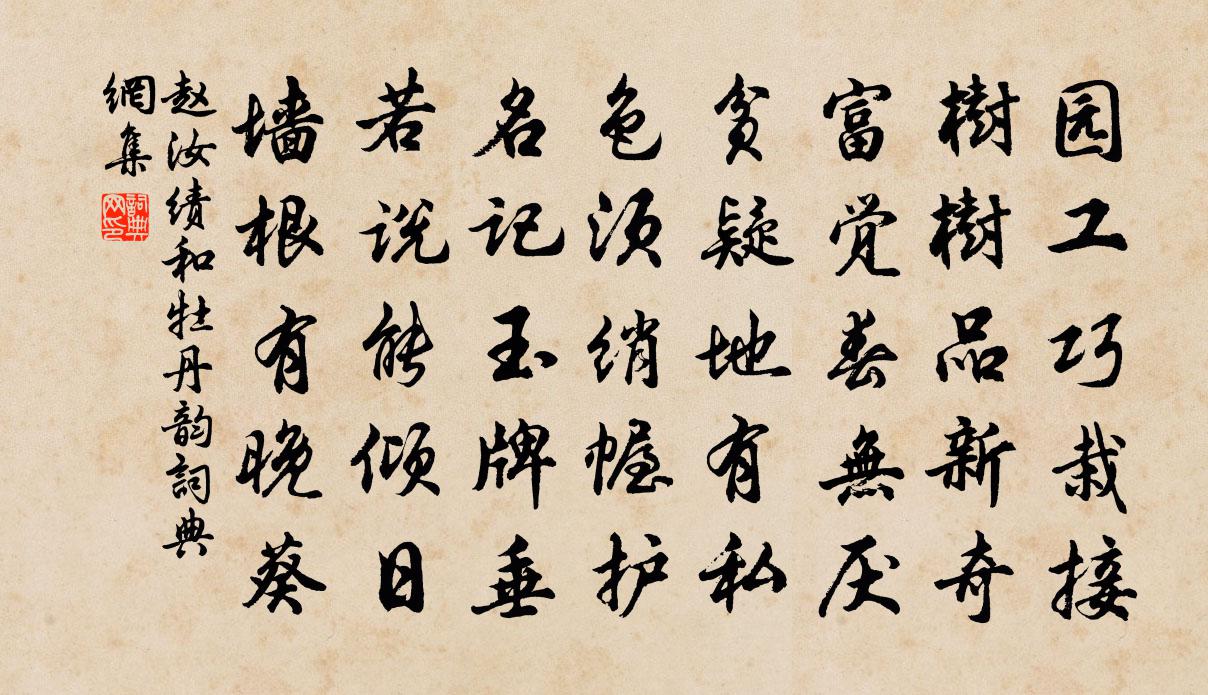 园工巧栽接
樹樹品新奇
富觉春無厌
貧疑地有私
色须绡幄护
名记玉牌垂
若说能倾日
墙根有晚葵
赵汝绩和牡丹韵詞典
網集
詞典网印